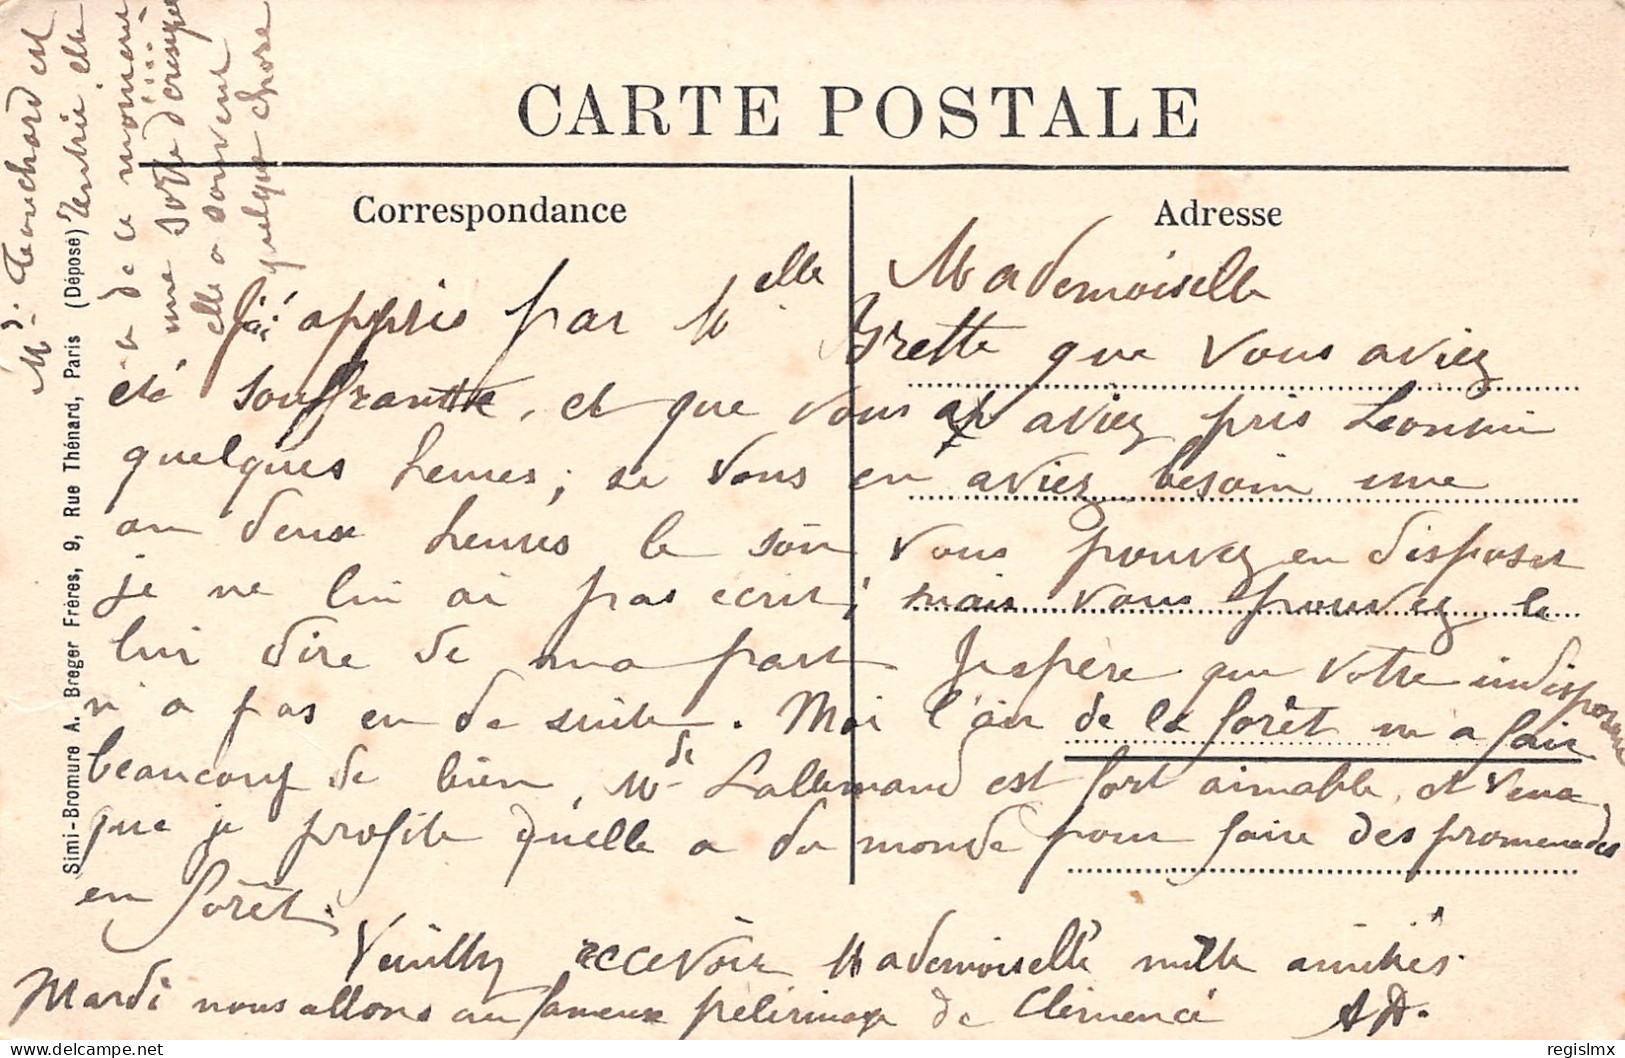 CARTE POSTALE
Correspondance
Adresse
Mademoiselle
J'ai appris par Melle Brette que vous aviez
été souffrante, et que vous aviez pris Leontine
quelques heures; si vous en aviez besoin une
ou deux heures le soir vous pouvez en disposer
je ne lui ai pas écrit; mais vous pouvez le
lui dire de ma part J'espère que votre
n'a pas eu de suite. Moi l'air de la forêt m'a fait
beaucoup de bien, Mde Lallemand est fort aimable, et
que je profite qu'elle a du monde pour faire des promenades
en forêt.
Veuillez recevoir Mademoiselle mille amitiés.
Mardi nous allons au fameux pélerinage de Clémencé AD.
Mr Touchard est
rentrée elle
de ce moment
une sorte d'
elle a souvent
quelque chose
Simi-Bromure A. Breger Frères, 9, Rue Thénard, Paris (Déposé)
regislmx